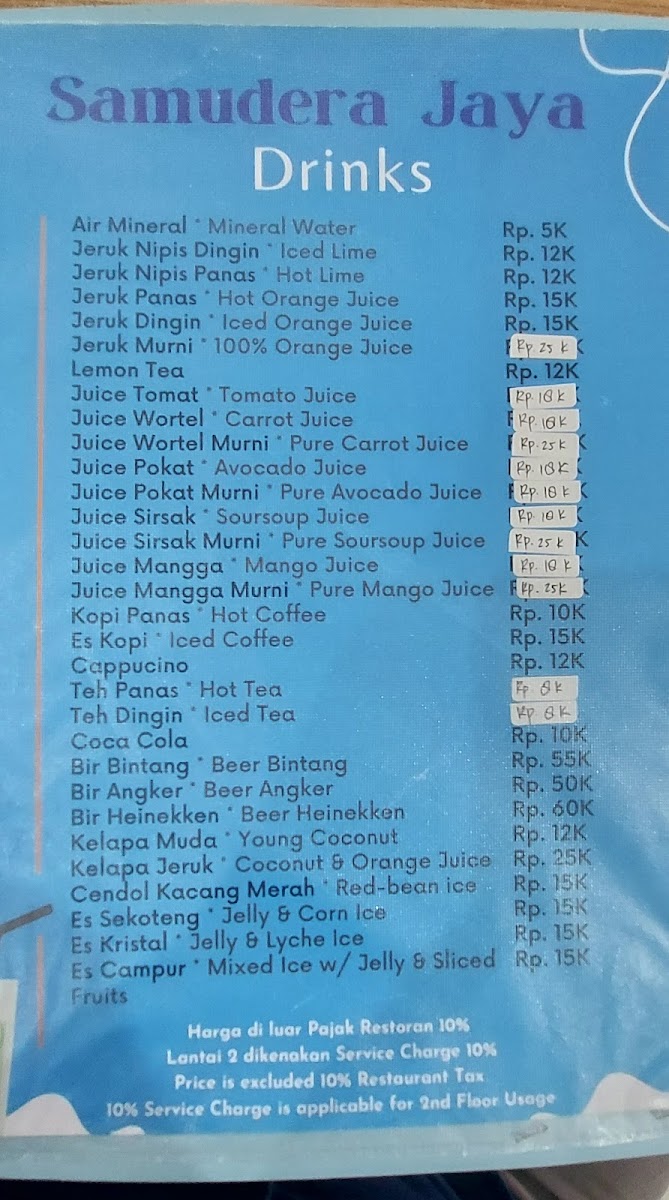 Samudera Jaya
Drinks
Air Mineral * Mineral Water Rp. 5K
Jeruk Nipis Dingin * Iced Lime Rp. 12K
Jeruk Nipis Panas * Hot Lime Rp. 12K
Jeruk Panas * Hot Orange Juice Rp. 15K
Jeruk Dingin * Iced Orange Juice Rp. 15K
Jeruk Murni * 100% Orange Juice Rp. 25 K
Lemon Tea Rp. 12K
Juice Tomat * Tomato Juice Rp. 18 K
Juice Wortel * Carrot Juice Rp. 18 K
Juice Wortel Murni * Pure Carrot Juice Rp. 25 K
Juice Pokat * Avocado Juice Rp. 18 K
Juice Pokat Murni * Pure Avocado Juice Rp. 18 K
Juice Sirsak * Soursoup Juice Rp. 18 K
Juice Sirsak Murni * Pure Soursoup Juice Rp. 25 K
Juice Mangga * Mango Juice Rp. 18 K
Juice Mangga Murni * Pure Mango Juice Rp. 25K
Kopi Panas * Hot Coffee Rp. 10K
Es Kopi * Iced Coffee Rp. 15K
Cappucino Rp. 12K
Teh Panas * Hot Tea Rp. 8 K
Teh Dingin * Iced Tea Rp. 8 K
Coca Cola Rp. 10K
Bir Bintang * Beer Bintang Rp. 55K
Bir Angker * Beer Angker Rp. 50K
Bir Heinekken * Beer Heinekken Rp. 60K
Kelapa Muda * Young Coconut Rp. 12K
Kelapa Jeruk * Coconut & Orange Juice Rp. 25K
Cendol Kacang Merah * Red-bean ice Rp. 15K
Es Sekoteng * Jelly & Corn Ice Rp. 15K
Es Kristal * Jelly & Lyche Ice Rp. 15K
Es Campur * Mixed Ice w/ Jelly & Sliced Rp. 15K
Fruits
Harga di luar Pajak Restoran 10%
Lantai 2 dikenakan Service Charge 10%
Price is excluded 10% Restaurant Tax
10% Service Charge is applicable for 2nd Floor Usage